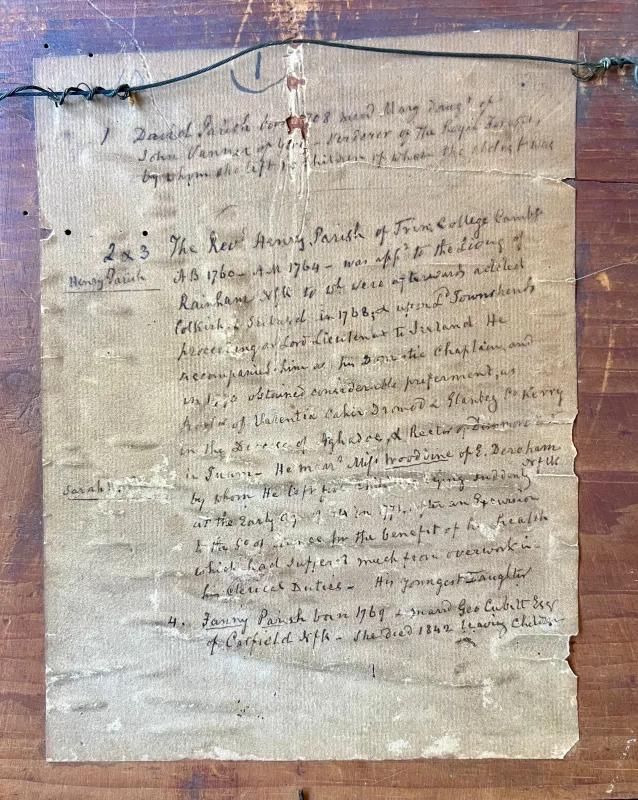 1
1 David Parish born 1708 mard Mary Daugr of
John Vanner of Verderer of The Royal Forests,
by whom she left children of whom the eldest was
2 & 3 The Revd Henry Parish of Trin: College Cambe
Henry Parish
AB 1760 - AM 1764 - was appd to the Living of
Rainham Nfk to wh were afterwards added
Colkirk & in 1768, & upon Ld Townshends
proceeding as Lord Lieutenant to Ireland He
accompanied him as his Domestic Chaplain, and
in obtained considerable preferment, as
of Valentia Cahir Dromod & Glanbeg Co Kerry
in the Diocese of Aghadoe, & Rector of
in Tuam - He mard Miss Woodbine of E. Dereham
Norfolk
Sarah
by whom He left dying suddenly
at the Early Age of in after an Excursion
to the So of for the benefit of his health
which had suffered much from overwork in
his Clerical Duties - His youngest Daughter
4. Fanny Parish born 1769 & mard Geo Cubitt Esqr
of Catfield Nfk - She died 1842 leaving Children